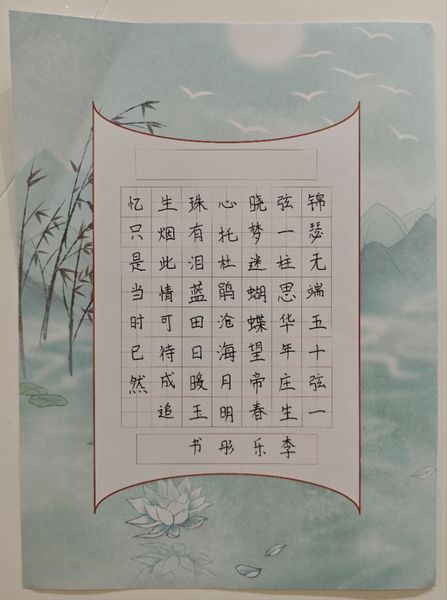 锦瑟无端五十弦一
弦一柱思华年庄生
晓梦迷蝴蝶望帝春
心托杜鹃沧海月明
珠有泪蓝田日暖玉
生烟此情可待成追
忆只是当时已然
李乐彤书